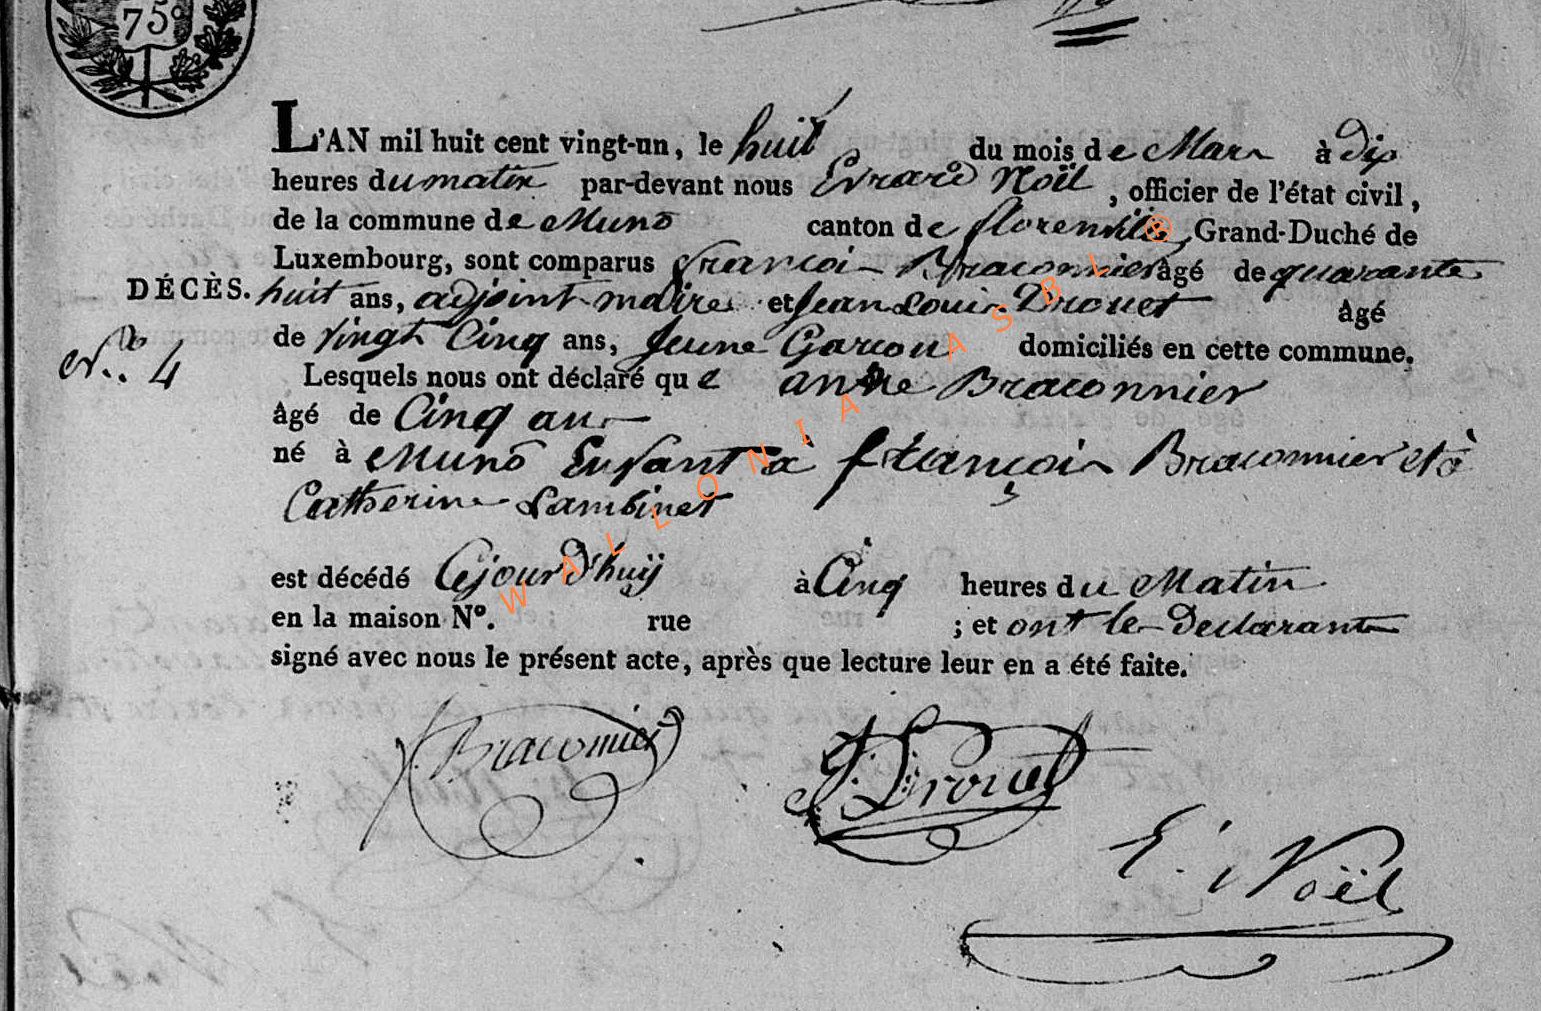 75c
L'AN mil huit cent vingt-un, le huit du mois de Mars à dix
heures du matin par-devant nous Evrard Noël, officier de l'état civil,
de la commune de Muno canton de florenville, Grand-Duché de
Luxembourg, sont comparus françois Braconnier âgé de quarante
DÉCÈS. huit ans, adjoint maire et Jean Louis Drouet âgé
N.º 4 de vingt Cinq ans, Jeune Garcon domiciliés en cette commune.
Lesquels nous ont déclaré que andre Braconnier
âgé de Cinq ans
né à Muno Enfant à françois Braconnier et à
Catherine Lambinet
est décédé Cejourd'huÿ à Cinq heures du Matin
en la maison Nº. rue ; et ont les Declarants
signé avec nous le présent acte, après que lecture leur en a été faite.
Braconnier J. Drouet
E. Noël
WALLONIA ASBL ®